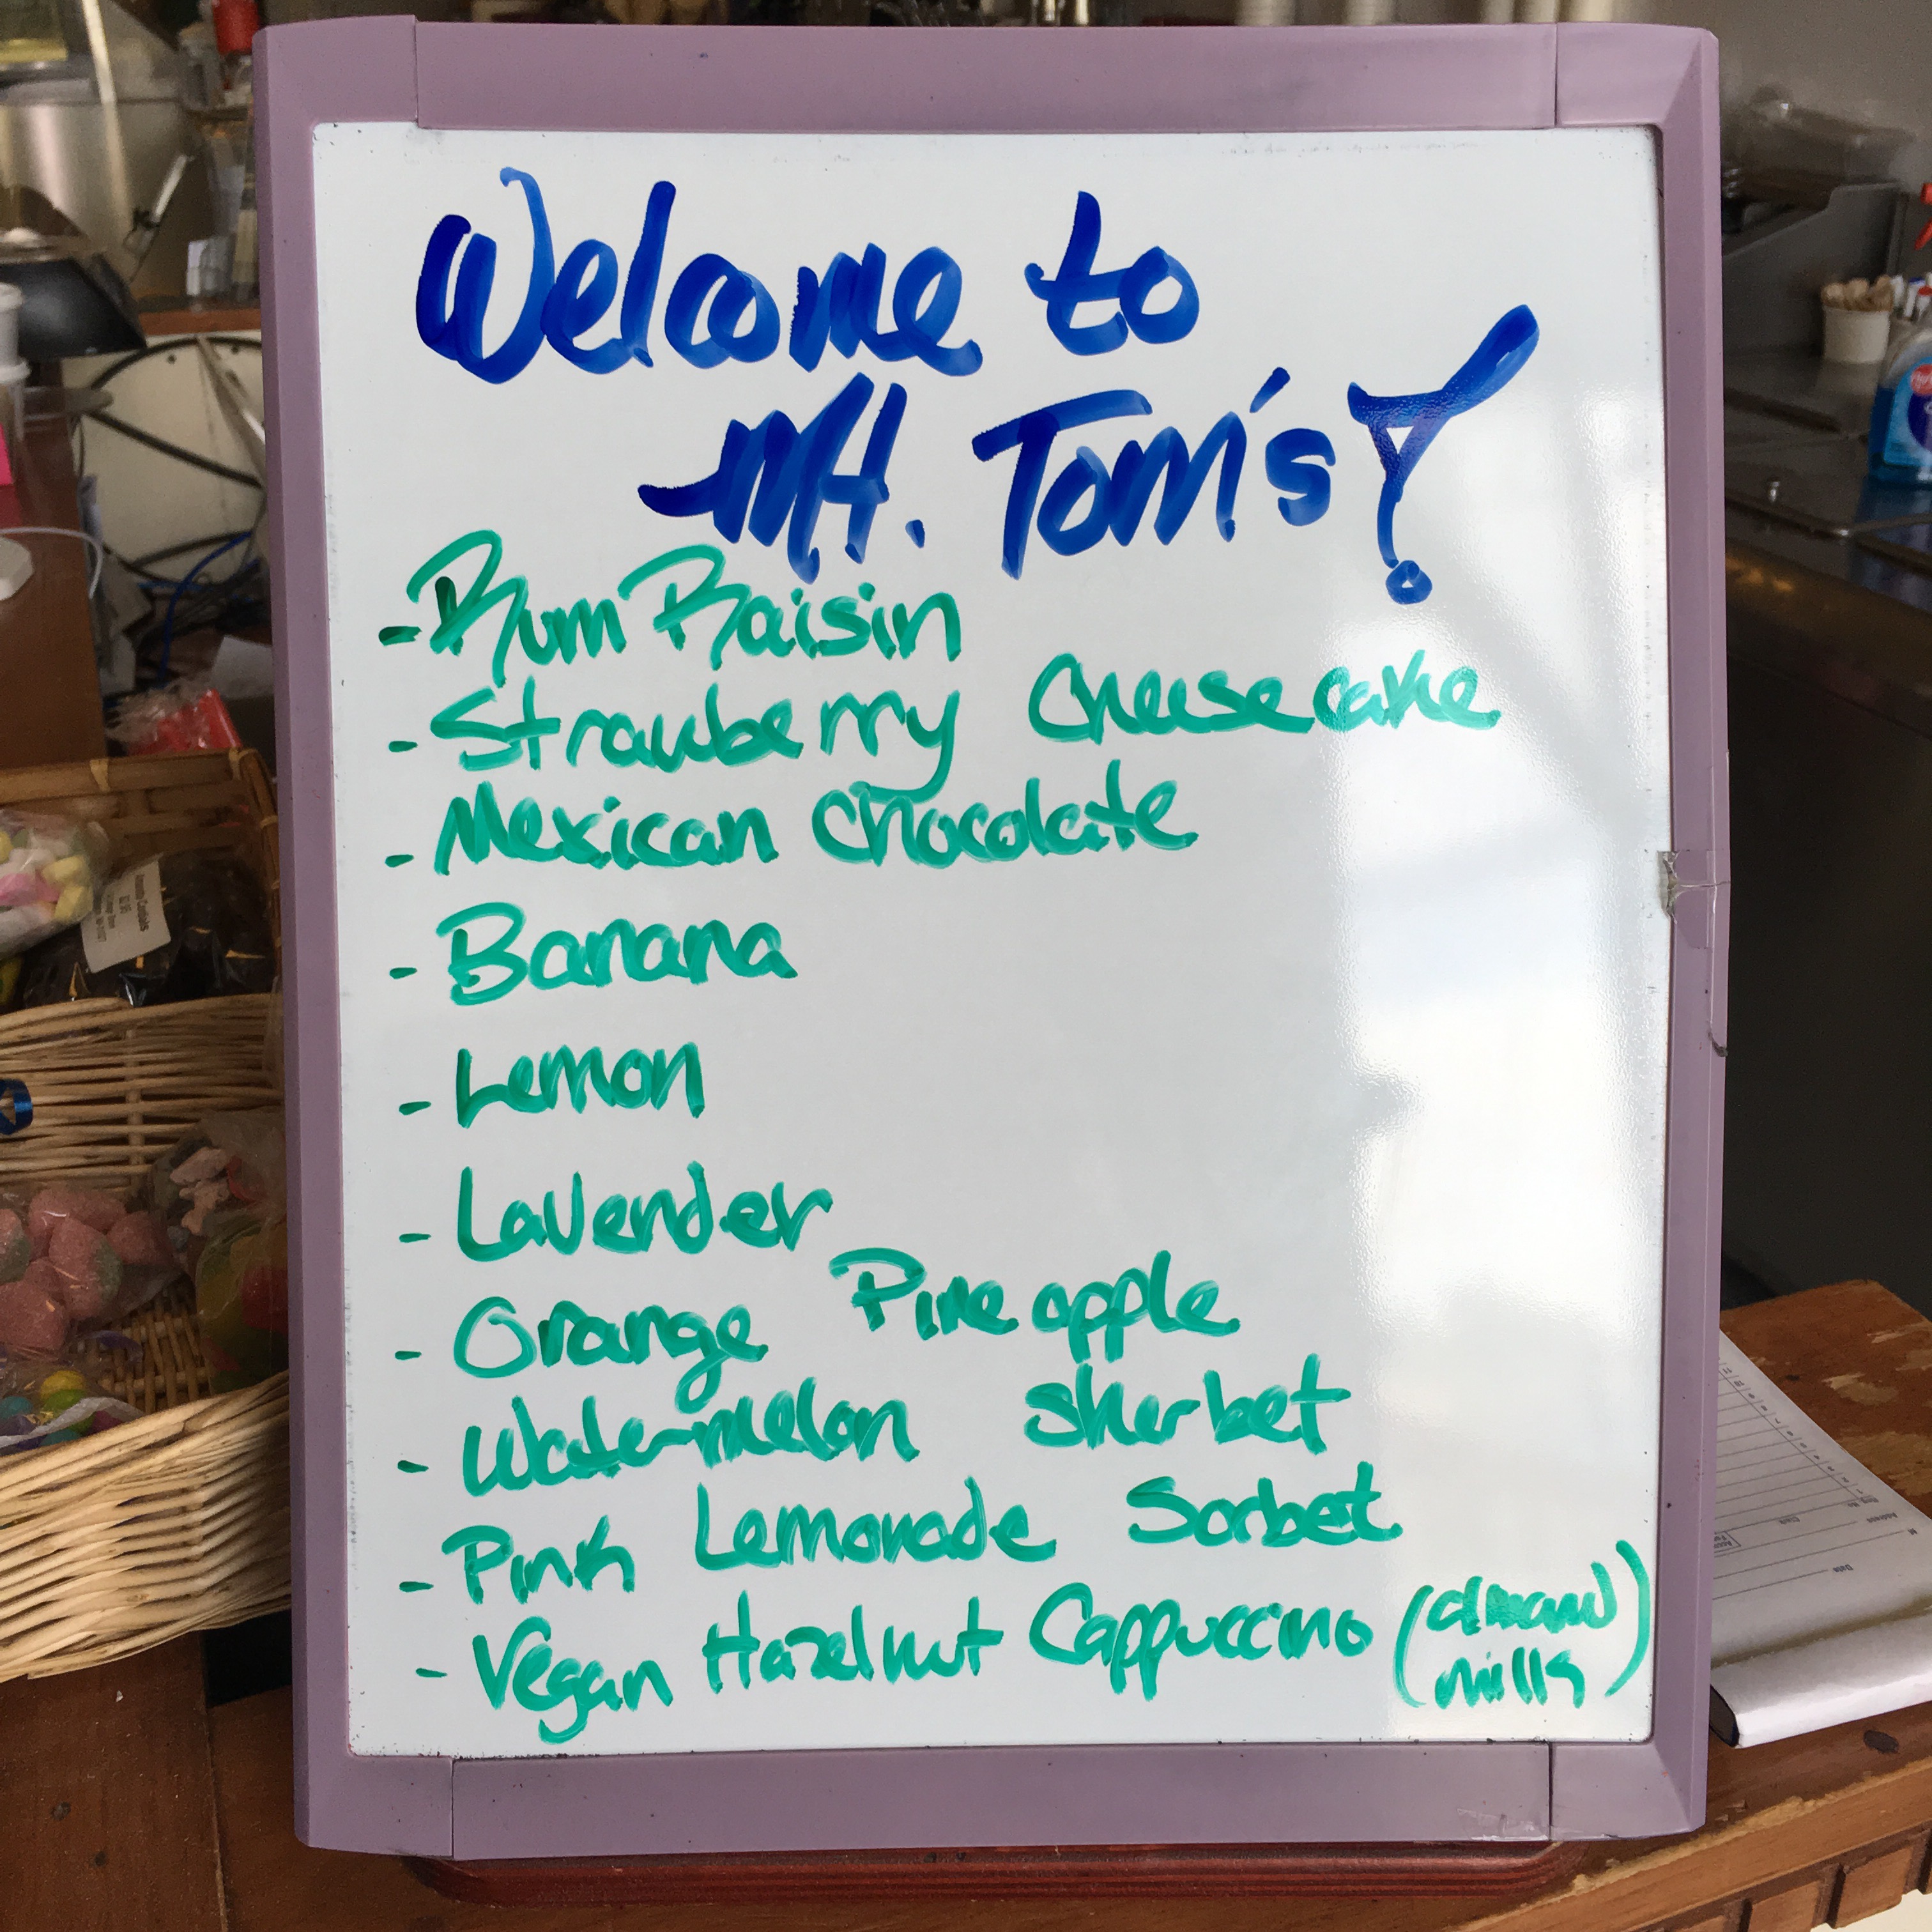 Welcome to
Mt. Tom's!
- Rum Raisin
- Strawberry Cheesecake
- Mexican Chocolate
- Banana
- Lemon
- Lavender
- Orange Pineapple
- Watermelon Sherbet
- Pink Lemonade Sorbet
- Vegan Hazelnut Cappuccino (almond
milk)
Date